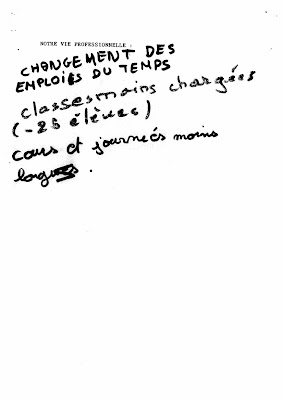 NOTRE VIE PROFESSIONNELLE .
CHANGEMENT DES
EMPLOIES DU TEMPS
classes moins chargées
(-25 élèves)
cours et journeés moins
longues .